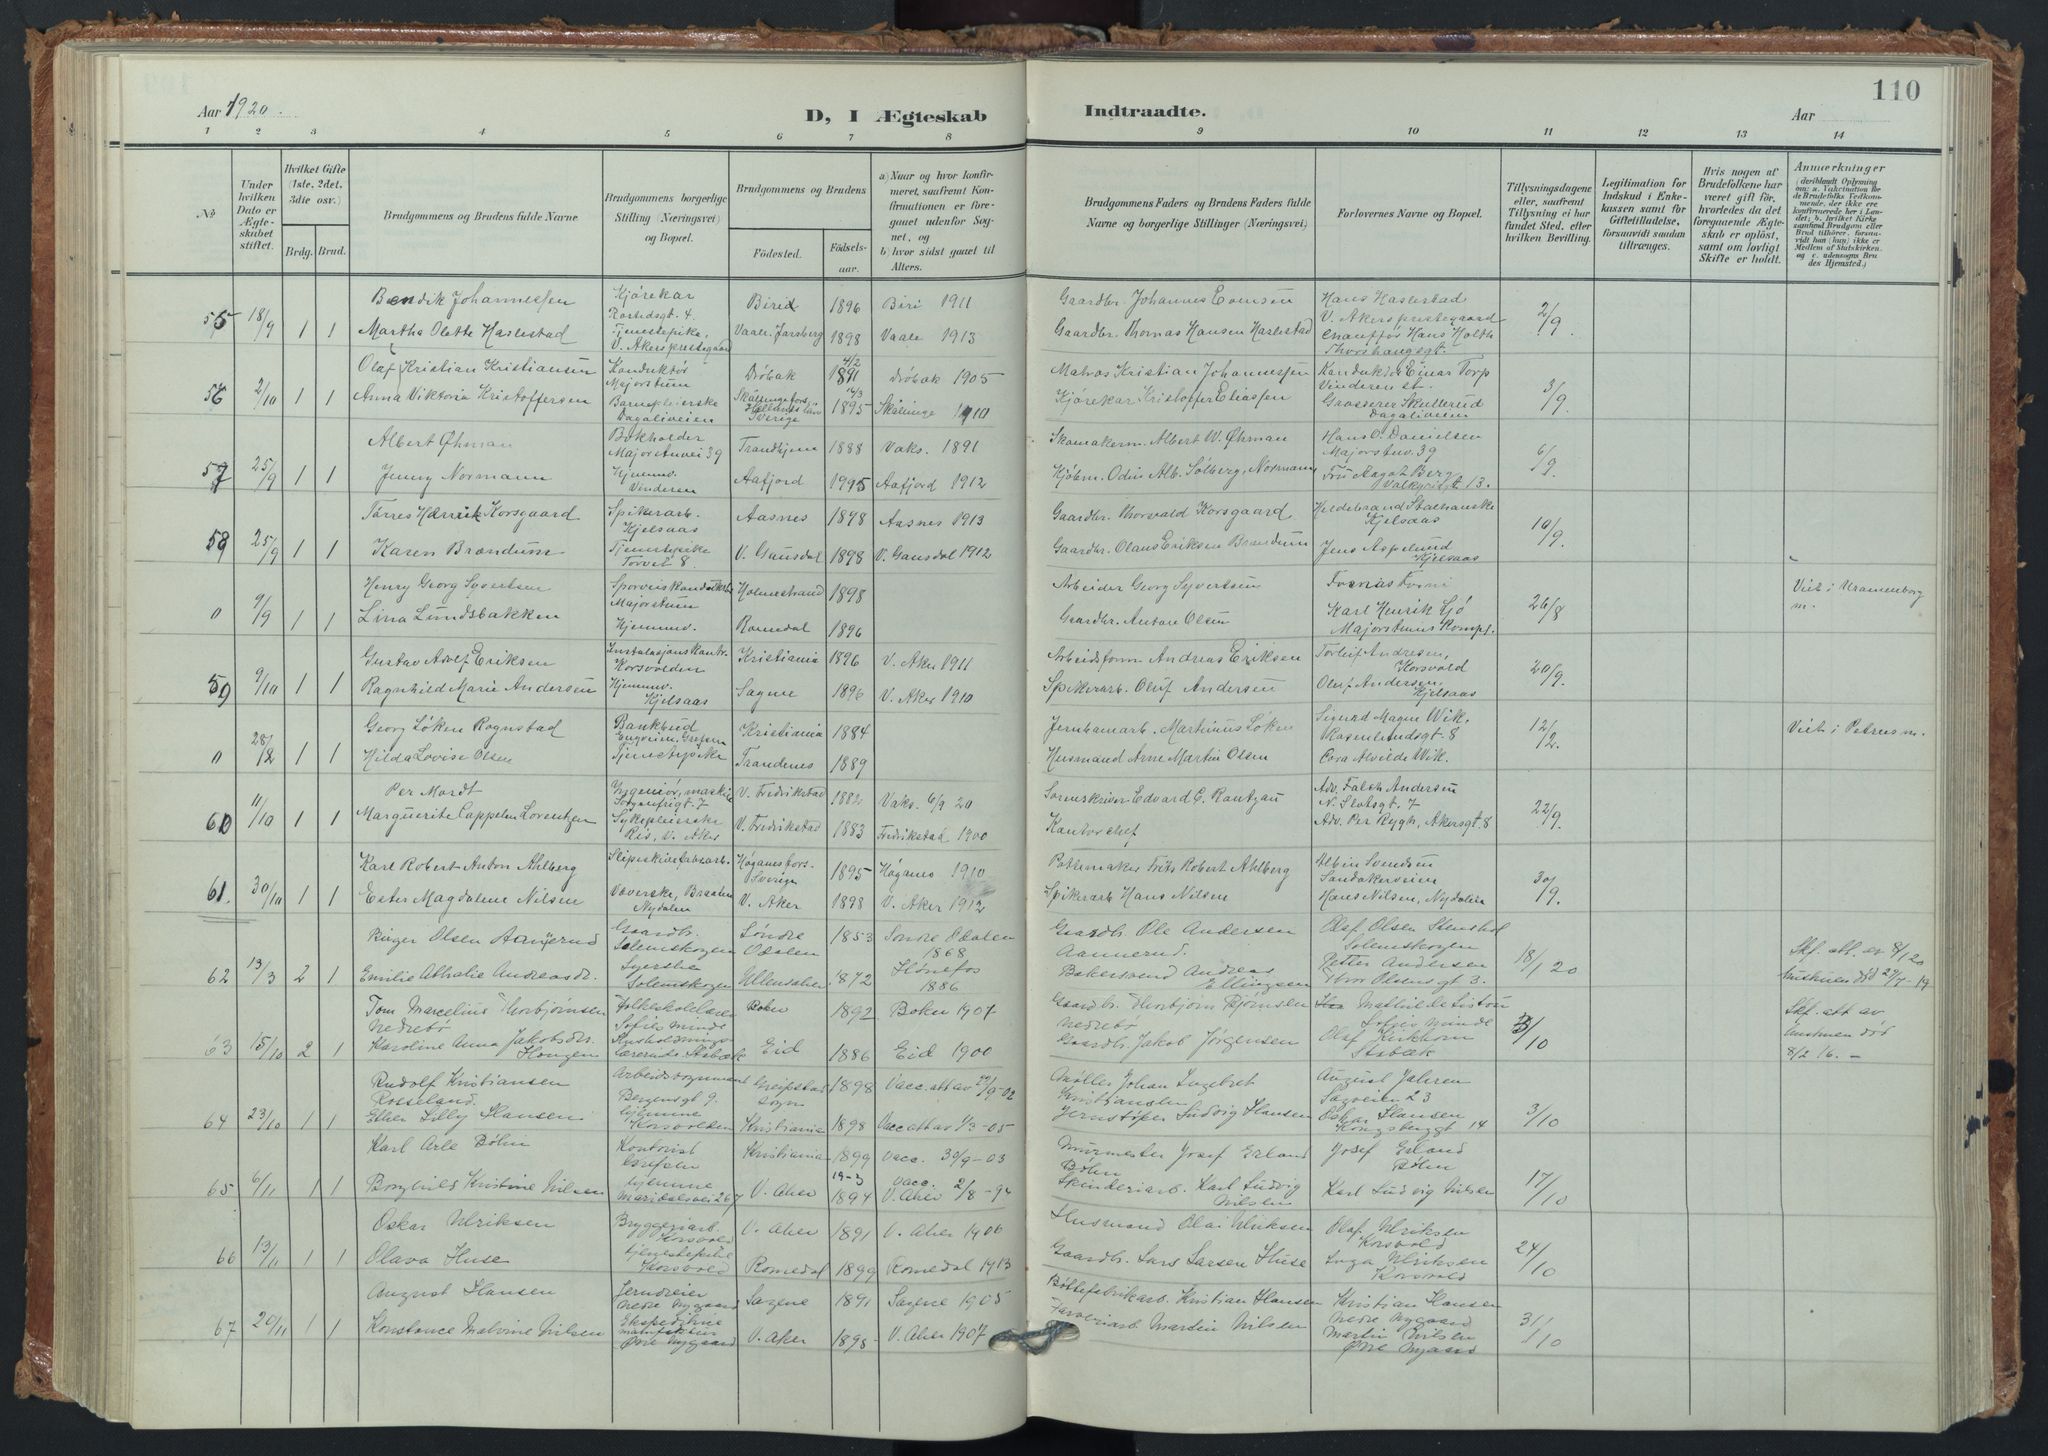 110
Aar 1920.
D, I Ægteskab Indtraadte.
Aar
1 2 3 4 5 6 7 8 9 10 11 12 13 14
№
Under hvilken Dato er Ægteskabet stiftet.
Hvilket Gifte (1ste, 2det, 3die osv.)
Brdg. Brud.
Brudgommens og Brudens fulde Navne
Brudgommens borgerlige Stilling (Næringsvei) og Bopæl.
Brudgommens og Brudens
Fødested. Fødselsaar.
a) Naar og hvor konfirmeret, saafremt Konfirmationen er foregaaet udenfor Sognet, og
b) hvor sidst gaaet til Alters.
Brudgommens Faders og Brudens Faders fulde Navne og borgerlige Stillinger (Næringsvei)
Forlovernes Navne og Bopæl.
Tillysningsdagene eller, saafremt Tillysning ei har fundet Sted, efter hvilken Bevilling.
Legitimation for Indskud i Enkekassen samt for Giftetilladelse, forsaavidt saadan tiltrænges.
Hvis nogen af Brudefolkene har været gift før, hvorledes da det foregaaende Ægteskab er opløst, samt om lovligt Skifte er holdt.
Anmærkninger
Bendik Johannessen Kjørekar Birid 1896 Biri 1911 Gaardbr. Johannes Evensen Hans Haslestad
55 18/9 1 1 Martha Olette Haslestad Tjenestepike, V. Akersprestegaard Vaale, Jarsberg 1898 Vaale 1913 Gaardbr. Thomas Hansen Haslestad V. Akersprestegaard Chauffør Hans Holth 2/9
Olaf Kristian Kristiansen Konduktør Majorstuen Drøbak 4/2 1891 Drøbak 1905 Matros Kristian Johannessen Konduktør Einar Torp Vinderen st.
56 2/10 1 1 Anna Viktoria Kristoffersen Barnepleierske Dagaliveien Sverige 1895 Skällinge 1910 Kjørekar Kristoffer Eliassen Grosserer Skutterud Dagaliveien 3/9
Albert Øhman Bokholder Majorstuvei 39 Trondhjem 1888 Vaks. 1891 Skomakerm. Albert W. Øhman Hans O. Danielsen Majorstuv. 39
57 25/9 1 1 Jenny Normann Hjemmev. Vinderen Aafjord 1995 Aafjord 1912 Kjøbm. Odin Alb. Solberg, Normann Fru Aagot Berg Valkyriegt 13. 6/9
Tørres Henrik Korsgaard Spikerarb. Kjelsaas Aasnes 1898 Aasnes 1913 Gaardbr. Thorvald Korsgaard Hildebrand Stalhanske Kjelsaas
58 25/9 1 1 Karen Brændum Tjenestepike Torvet 8. V. Gausdal 1898 V. Gausdal 1912 Gaardbr. Olaus Eriksen Brændum Jens Aspelund Kjelsaas 10/9
Henry Georg Syvertsen Majorstuen Holmestrand 1898 Arbeider Georg Syvertsen
0 9/9 1 1 Lina Lundsbakken Hjemmev. Romedal 1896 Gaardbr. Anton Olsen Karl Henrik Sjø 26/8 Viet i Uranienborg m.
Gustav Adolf Eriksen Korsvolden Kristiania 1896 V. Aker 1911 Arbeidsform. Andreas Eriksen Torleif Andresen, Korsvold
59 9/10 1 1 Ragnhild Marie Andersen Hjemmev. Kjelsaas Sagne 1896 V. Aker 1910 Spikerarb. Oluf Andersen Oluf Andersen, Kjelsaas 20/9.
Georg Løken Rognstad Bankbud Engveien, Grefsen Kristiania 1884 Jernbanarb. Martinius Løken Sigurd Magne Wik. Rosenlundsgt. 8
0 28/12 1 1 Hilda Lovise Olsen Tjenestepike Trondenes 1889 Husmand Arne Martin Olsen Cora Alvilde Wik. 12/12. Viet i Petrus m.
Per Mordt Ingeniør, maskin Sorgenfrigt. 7 V. Fredrikstad 1882 Vaks. 6/9 20 Sorenskriver Edvard C. Rantzau Adv. Falch Andersen N. Slotsgt. 7
60 11/10 1 1 Marguerite Cappelen Lorentzen Sykepleierske Ris, V. Aker V. Fredrikstad 1883 Fredrikstad 1900 Kontorchef Adv. Per Rygh, Akersgt. 8 22/9.
Karl Robert Anton Ahlberg Slipeskivefabarb. Høganesfors. Sverige 1895 Høganes 1910 Pottemaker Frits Robert Ahlberg Albin Svendsen Sandakerveien
61. 30/10 1 1 Ester Magdalene Nilsen Væverske, Braaten Nydalen V. Aker 1898 V. Aker 1912 Spikerarb Hans Nilsen Hans Nilsen, Nydalen 30/9.
Birger Olsen Gaardbr. Solemskogen Søndre Odalen 1853 Søndre Odalen 1868 Gaardb. Ole Andersen Aannerud. Olaf Olsen Stenshol Solemskogen
62 13/3 2 1 Emilie Athalie Andreasdr. Syerske Solemskogen Ullensaker 1872 Hønefos 1886 Bakersvend Andreas Ellingsen Petter Andersen Thor Olsens gt 3. 18/1 20 Skf. att. av 8/1 20 hustruen død 27/7-19
Tom Marcelius Thorbjørnsen Nedrebø Folkeskolelærer Sofies Minde Bokn 1892 Bokn 1907 Gaardb. Thorbjørn Bjørnsen Nedrebø Mathilde Liston Sofies Minde
63 15/10 2 1 Karoline Anna Jakobsdr. Haugen Husholdningslærerinde, Stabæk Eid 1886 Eid 1900 Gaardb. Jakob Jørgensen Olaf Kirkhorn Stabæk 3/10 Skf. att av Anstmen død 8/2 16. –
Rudolf Kristiansen Rosseland. Bergensgt 9. Greipstad sogn 1898 Vacc. att av 22/9-02 Møller Johan Ingebret Kristiansen August Jahren Sagveien 23
64 23/10 1 1 Ellen Lilly Hansen hjemme Korsvolden Kristiania 1898 Vacc att av 1/3-05 Jernstøper Ludvig Hansen Oskar Hansen Kongsberggt 14 3/10
Karl Arle Bøhn Kontorist Grefsen Kristiania 1899 Vacc. 30/9-03 Murmester Josef Erland Bøhn Josef Erland Bøhn
65 6/11 1 1 Borghild Kristine Nilsen hjemme Maridalsvei 267 V. Aker 19-3 1894 vacc. V. Aker 2/8-94 Skinderiarb. Karl Ludvig Nilsen Karl Ludvig Nilsen 17/10
Oskar Ulriksen Bryggeriarb. Korsvold V. Aker 1891 V. Aker 1906 Husmand Olai Ulriksen Olaf Ulriksen Korsvold
66 13/11 1 1 Olava Huse tjenestepike Korsvold Romedal 1899 Romedal 1913 Gaardb. Lars Larsen Huse Inga Ulriksen Korsvold 24/10
August Hansen Jerndreier Nedre Nygaard Sagene 1891 Sagene 1905 Bøttefabrikarb. Kristian Hansen Kristian Hansen Nedre Nygaard
67 20/11 1 1 Konstance Malvine Nilsen Ekspeditrise manufaktur Øvre Nygaard V. Aker 1898 V. Aker 1907 Farveriarb Martin Nilsen Martin Nilsen Øvre Nygaard 31/10